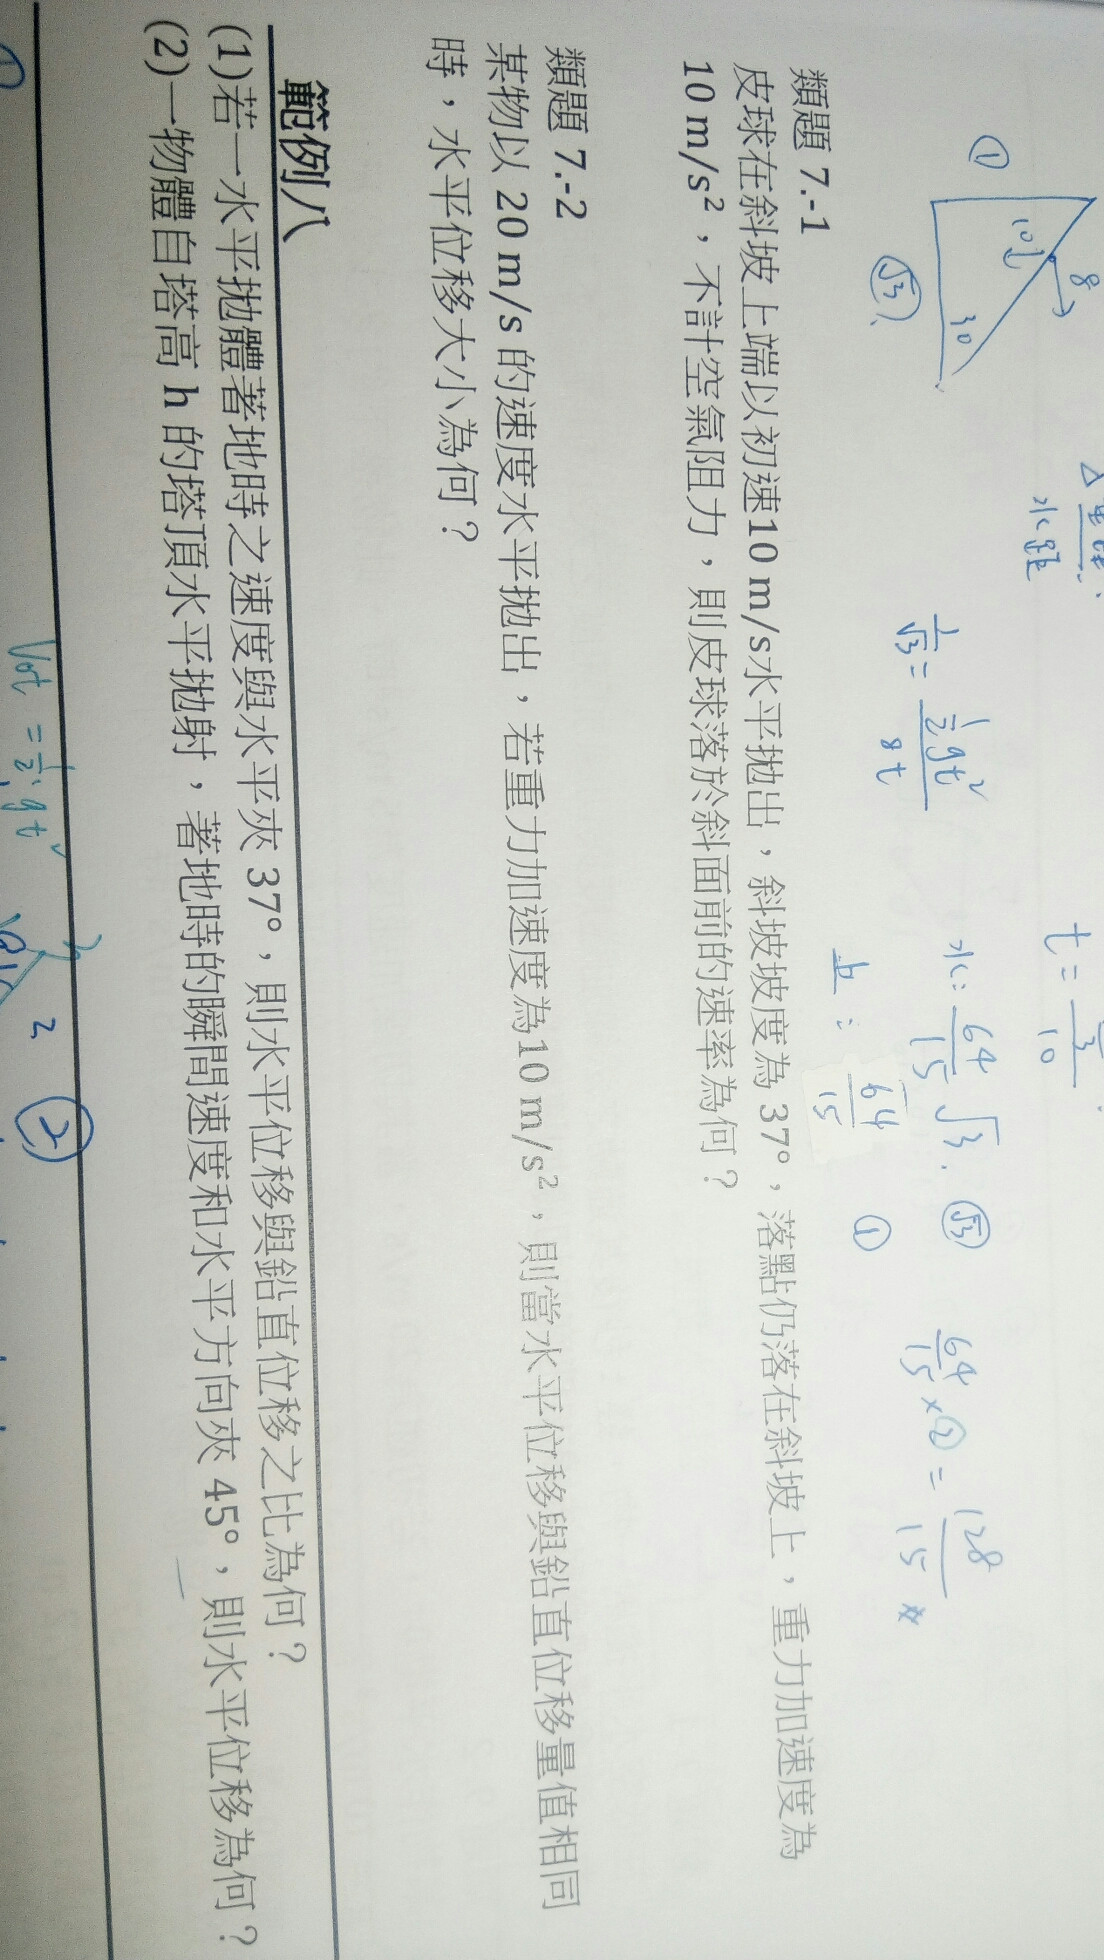 8
①
10
30
√3
水距
1/√3 = ½gt²/8t
t = 3/10
水: 64/15 √3. √3
上: 64/15 ①
64/15 × ② = 128/15
類題 7.-1
皮球在斜坡上端以初速10 m/s水平拋出，斜坡坡度為 37°，落點仍落在斜坡上，重力加速度為
10 m/s²，不計空氣阻力，則皮球落於斜面前的速率為何？
類題 7.-2
某物以 20 m/s 的速度水平拋出，若重力加速度為10 m/s²，則當水平位移與鉛直位移量值相同
時，水平位移大小為何？
範例八
(1)若一水平拋體著地時之速度與水平夾 37°，則水平位移與鉛直位移之比為何？
(2)一物體自塔高 h 的塔頂水平拋射，著地時的瞬間速度和水平方向夾 45°，則水平位移為何？
V₀t = ½·gt²
2
②